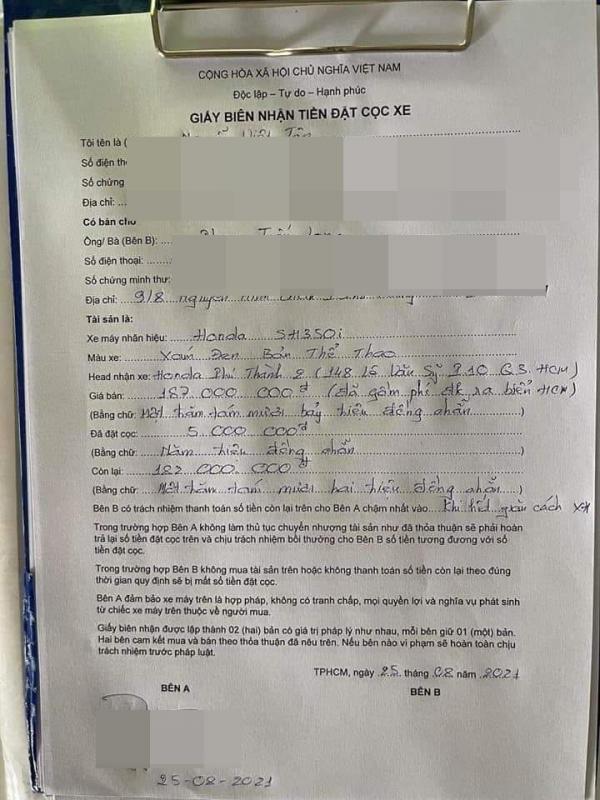 CỘNG HÒA XÃ HỘI CHỦ NGHĨA VIỆT NAM
Độc lập – Tự do – Hạnh phúc
GIẤY BIÊN NHẬN TIỀN ĐẶT CỌC XE
Tôi tên là (
Số điện th
Số chứng
Địa chỉ: ...
Có bán chu
Ông/ Bà (Bên B): ....
Số điện thoại: ........
Số chứng minh thư:
Địa chỉ: 918
Tài sản là:
Xe máy nhãn hiệu: Honda SH350i
Màu xe: Xám Đen Bản Thể Thao
Head nhận xe: Honda Phú Thành 2 (148 Lê Văn Sỹ P.10 Q3. HCM)
Giá bán: 187 000 000đ (đã gồm phí đk ra biển HCM)
(Bằng chữ: Một trăm tám mươi bảy triệu đồng chẵn)
Đã đặt cọc: 5 000 000đ
(Bằng chữ: Năm triệu đồng chẵn)
Còn lại: 182 000 000đ
(Bằng chữ: Một trăm tám mươi hai triệu đồng chẵn)
Bên B có trách nhiệm thanh toán số tiền còn lại trên cho Bên A chậm nhất vào Khi hết giãn cách XH
Trong trường hợp Bên A không làm thủ tục chuyển nhượng tài sản như đã thỏa thuận sẽ phải hoàn
trả lại số tiền đặt cọc trên và chịu trách nhiệm bồi thường cho Bên B số tiền tương đương với số
tiền đặt cọc.
Trong trường hợp Bên B không mua tài sản trên hoặc không thanh toán số tiền còn lại theo đúng
thời gian quy định sẽ bị mất số tiền đặt cọc.
Bên A đảm bảo xe máy trên là hợp pháp, không có tranh chấp, mọi quyền lợi và nghĩa vụ phát sinh
từ chiếc xe máy trên thuộc về người mua.
Giấy biên nhận được lập thành 02 (hai) bản có giá trị pháp lý như nhau, mỗi bên giữ 01 (một) bản.
Hai bên cam kết mua và bán theo thỏa thuận đã nêu trên. Nếu bên nào vi phạm sẽ hoàn toàn chịu
trách nhiệm trước pháp luật.
TPHCM, ngày 25 tháng 08 năm 2021
BÊN A BÊN B
25-08-2021